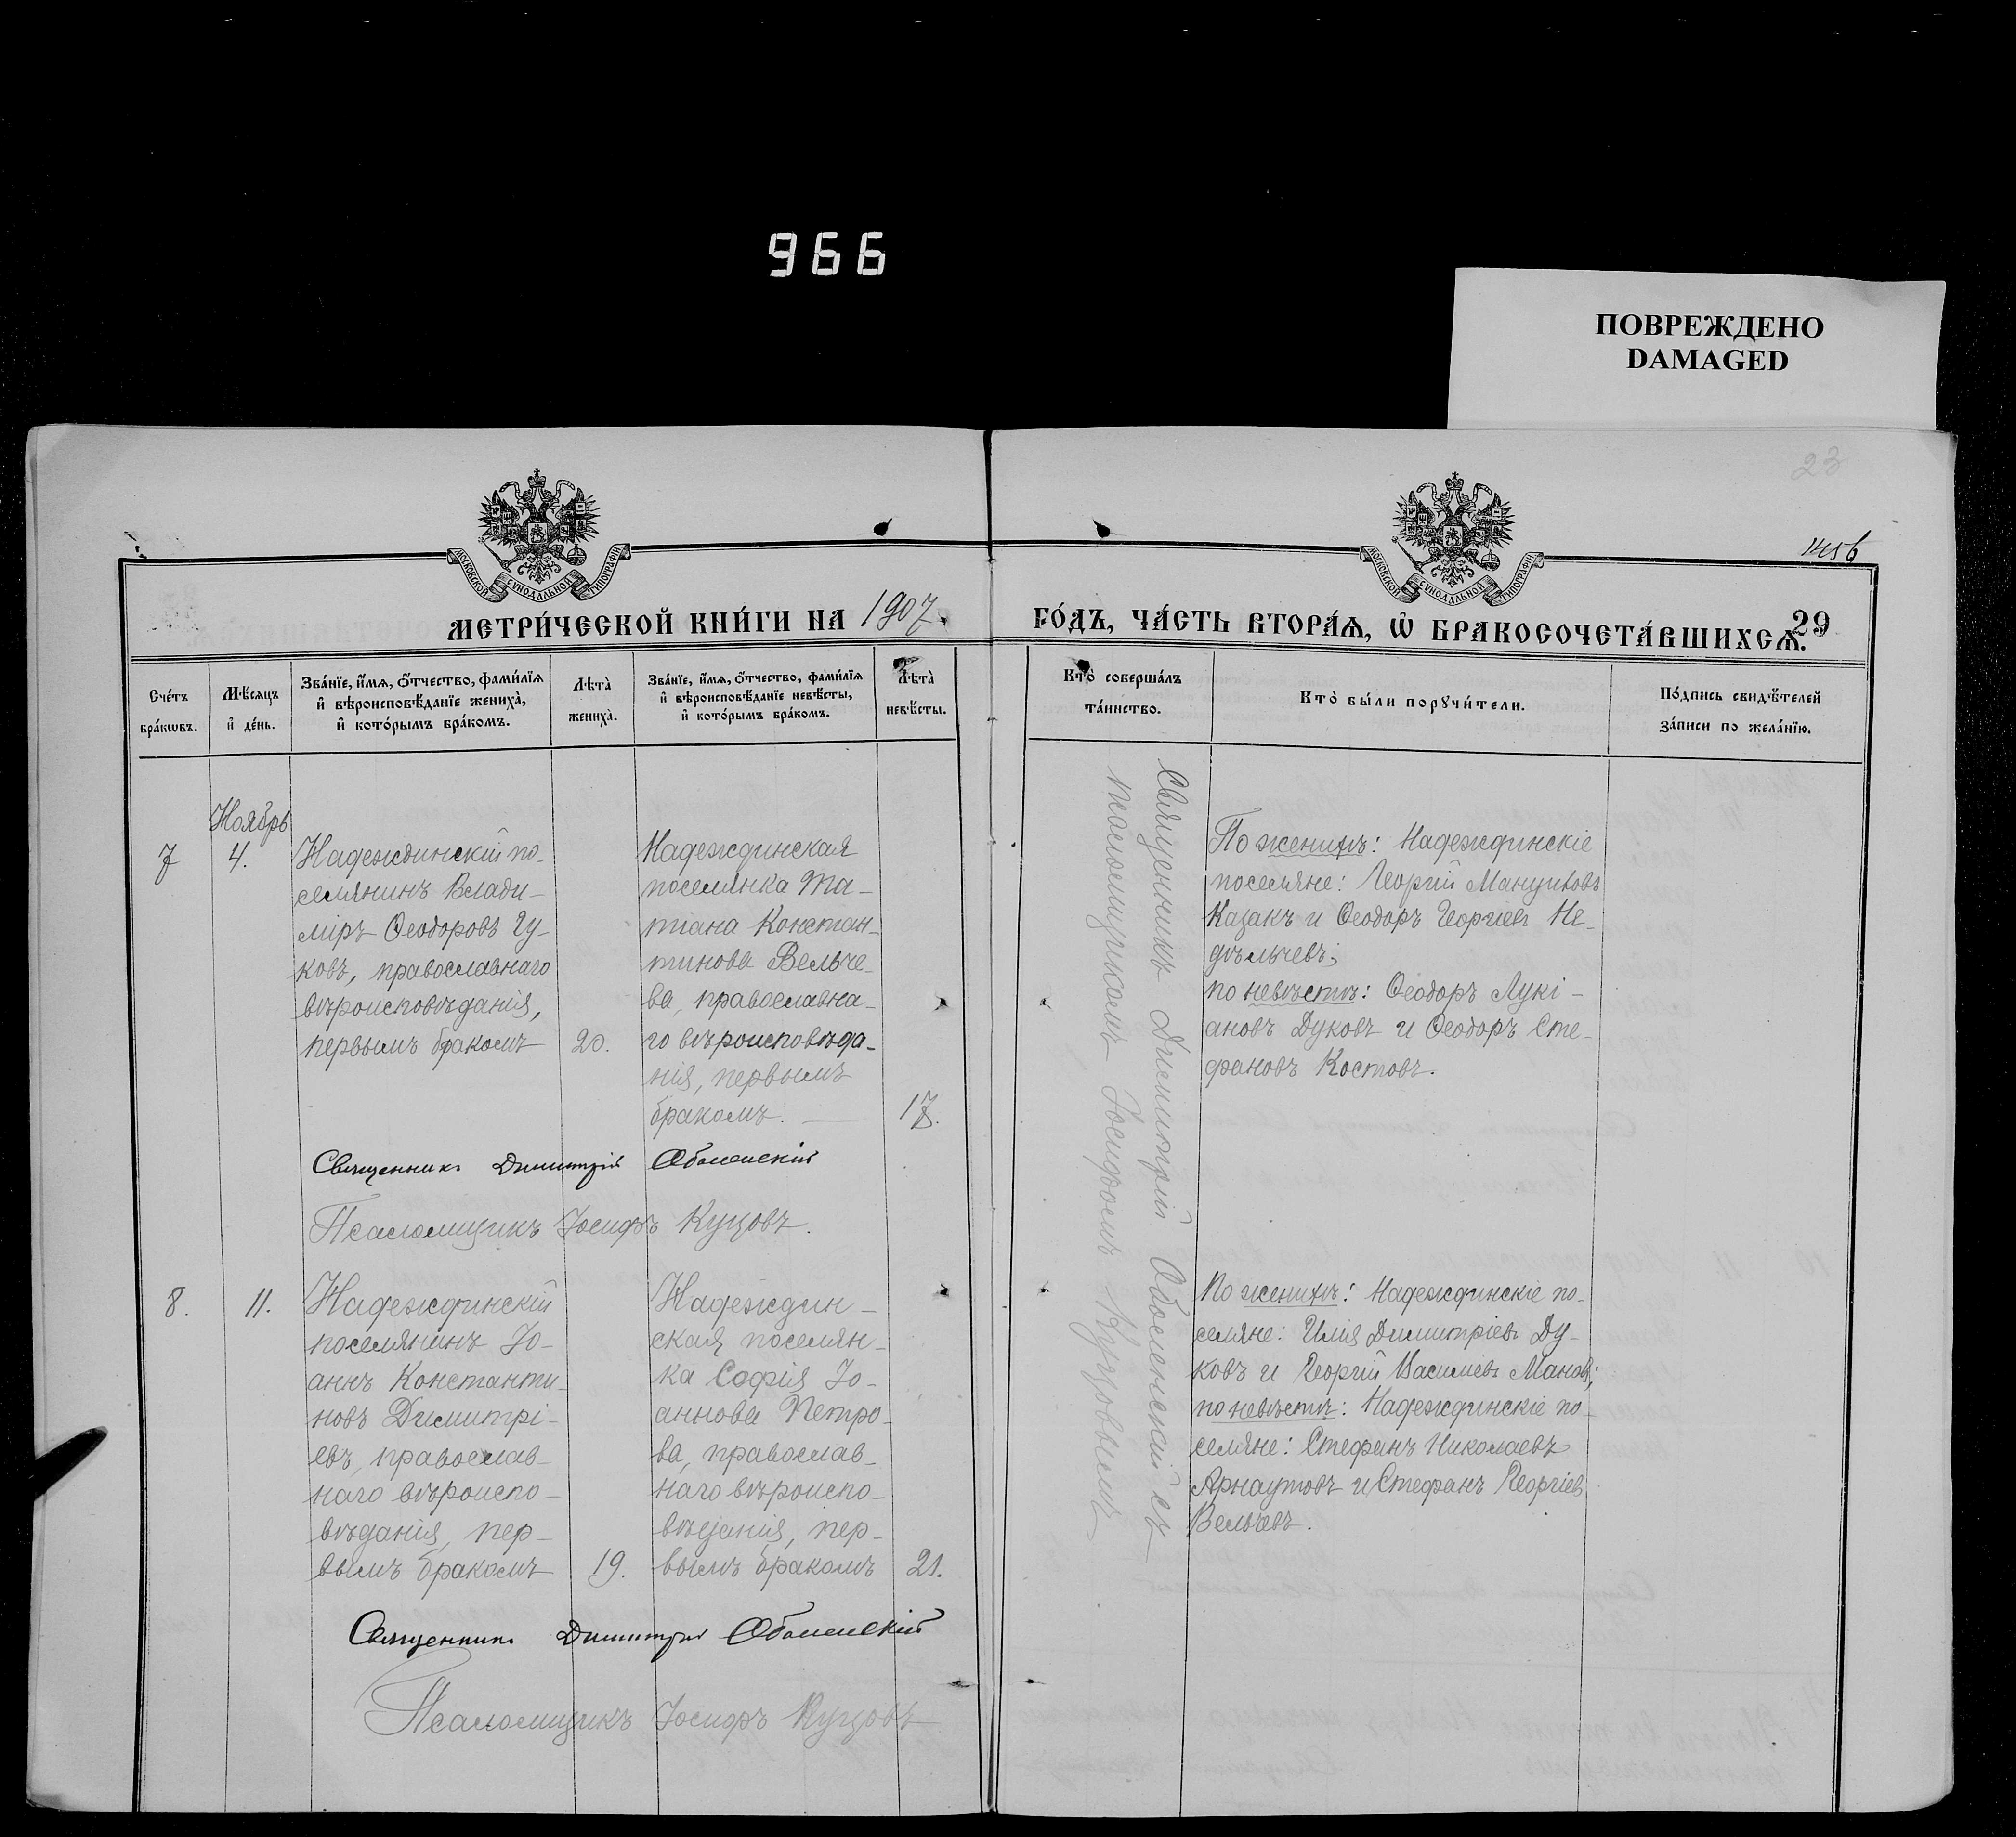 966
ПОВРЕЖДЕНО
DAMAGED
23
29
МОСКОВСКОЙ СѴНОДАЛЬНОЙ ТИПОГРАФІИ
МОСКОВСКОЙ СѴНОДАЛЬНОЙ ТИПОГРАФІИ
МЕТРИ́ЧЕСКОЙ КНИ́ГИ НА 1907.
ГО́ДЪ, ЧА́СТЬ ВТОРА́Ѧ, Ѡ҆ БРАКОСОЧЕТА́ВШИХСѦ.
Сче́тъ
бра́кѡвъ.
Мѣ́сяцъ
и҆ де́нь.
Зва́нїе, и҆́мѧ, ѻ҆́тчество, фами́лїѧ
и҆ вѣроисповѣ́данїе жениха̀,
и҆ кото́рымъ бра́комъ.
Лѣта̀
жениха̀.
Зва́нїе, и҆́мѧ, ѻ҆́тчество, фами́лїѧ
и҆ вѣроисповѣ́данїе невѣ́сты,
и҆ кото́рымъ бра́комъ.
Лѣта̀
невѣ́сты.
Кто̀ соверша́лъ
та́инство.
Кто̀ бы́ли порꙋчи́тели.
По́дпись свидѣ́телей
за́писи по жела́нїю.
Ноябрь
7
4.
Надеждинскій по-
селянинъ Влади-
міръ Ѳеодоровъ Гу-
ковъ, православнаго
вѣроисповѣданія,
первымъ бракомъ
20.
Надеждинская
поселянка Та-
тіана Констан-
тинова Вельче-
ва, православна-
го вѣроисповѣда-
нія, первымъ
бракомъ.
17.
Священникъ Димитрій Оболенскій
Псаломщикъ Іосифъ Куцовъ.
Священникъ Димитрій Оболенскій съ
псаломщикомъ Іосифомъ Куцовымъ
По женихѣ: Надеждинскіе
поселяне: Георгій Манцуковъ
Казакъ и Ѳеодоръ Георгіевъ Не-
дѣльчевъ;
по невѣстѣ: Ѳеодоръ Лукі-
ановъ Дуковъ и Ѳеодоръ Сте-
фановъ Костовъ.
8.
11.
Надеждинскій
поселянинъ Іо-
аннъ Константи-
новъ Димитрі-
евъ, православ-
наго вѣроиспо-
вѣданія, пер-
вымъ бракомъ
19.
Надеждин-
ская поселян-
ка Софія Іо-
аннова Петро-
ва, православ-
наго вѣроиспо-
вѣданія, пер-
вымъ бракомъ
21.
По женихѣ: Надеждинскіе по-
селяне: Илія Димитріевъ Ду-
ковъ и Георгій Василіевъ Мановъ;
по невѣстѣ: Надеждинскіе по-
селяне: Стефанъ Николаевъ
Арнаутовъ и Стефанъ Георгіевъ
Вельчевъ.
Священникъ Димитрій Оболенскій
Псаломщикъ Іосифъ Куцовъ